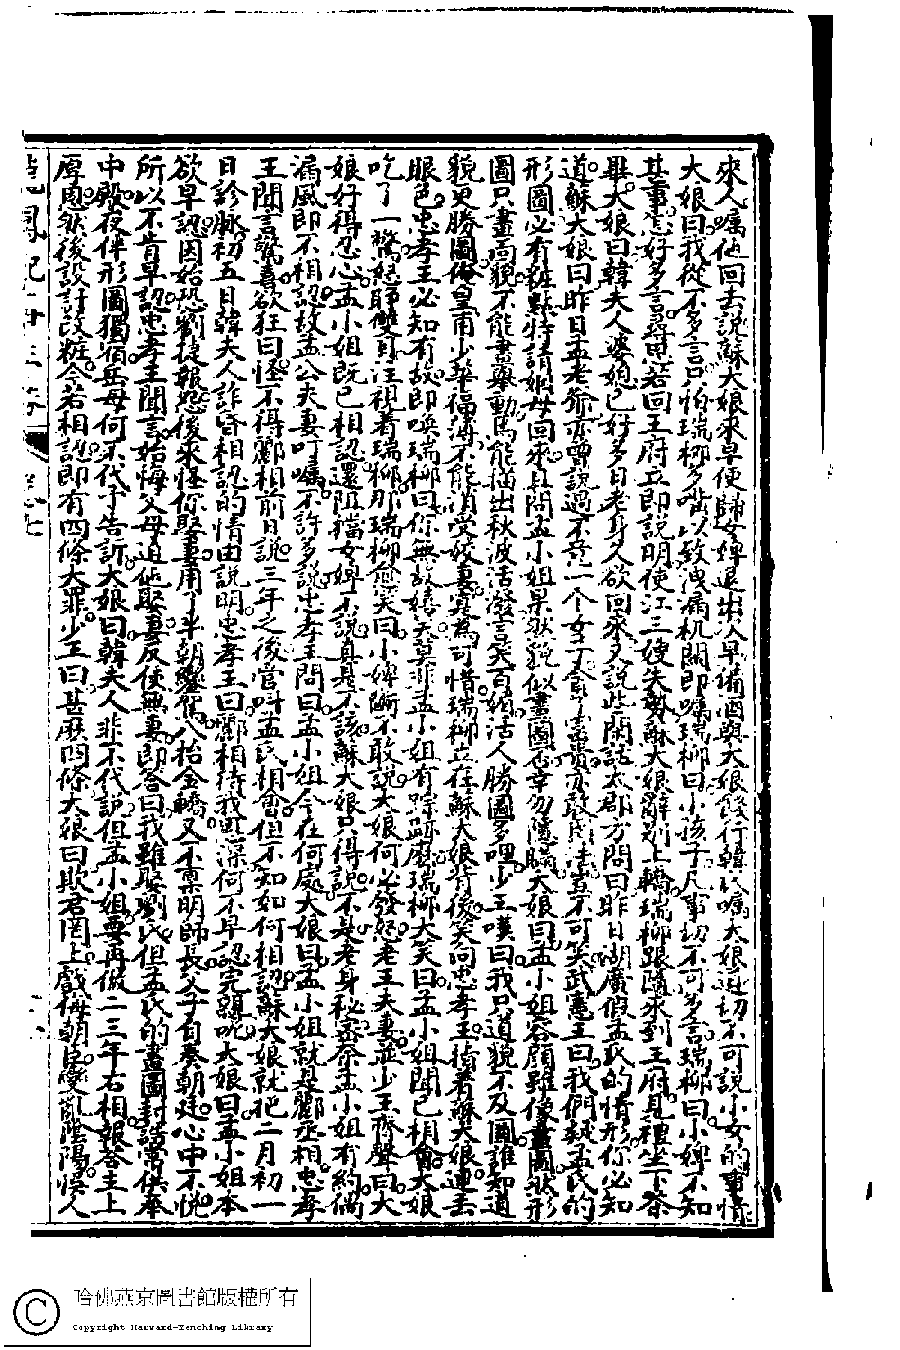 來人囑他回去說蘇大娘來早便歸女婢退出次早備酒與大娘餞行韓氏囑大娘返切不可說小女的事情
大娘曰我從不多言只怕瑞柳多嘴以致洩漏机關即囑瑞柳曰小孩子凡事切不可多言瑞柳曰小婢不知
甚事怎好多言尋思若回王府立即說明使江三嫂失勢蘇大娘辭別上轎瑞柳跟隨來到王府見禮坐下茶
畢大娘曰韓夫人婆媳已好多日老身人欲回來多說些閑話太郡方問曰昨日湖廣假孟氏的情形你必知
道蘇大娘曰昨日孟老爺亦曾說過不意一个女子貪富貴亦敢 不可笑武憲王曰我們疑孟氏的
形圖必有粧點特請姻母回來且問孟小姐果然貌似畫圖否幸勿隱瞞大娘曰孟小姐容顏雖像畫圖狀形
圖只畫面貌不能畫藥動馬能描出秋波活潑言笑百媚活人勝圖多哩少王嘆曰我只道貌不及圖誰知道
貌更勝圖俺皇甫少華福薄不能消受姣妻寔為可惜瑞柳立在蘇大娘背後笑向忠孝王倚着蘇大娘連丟
眼色忠孝王必知有故即喚瑞柳曰你無故嬉笑莫非孟小姐有踪跡麼瑞柳大笑曰孟小姐聞已相會大娘
吃了一驚怒睜雙目注視着瑞柳那瑞柳愈笑曰小婢斷不敢說大娘何必發怒老王夫妻並少王齊聲曰大
娘好得忍心孟小姐既已相認還阻擋女婢不說真是不該蘇大娘只得說不是老身秘密奈孟小姐有約偶
漏風即不相認故孟公夫妻叮囑不許多說忠孝王問曰孟小姐今在何處大娘曰孟小姐就是酈丞相忠孝
王聞言驚喜欲狂曰怪不得酈相前日說三年之後當叫孟氏相會但不知如何相認蘇大娘就把二月初一
日診脉初五日韓夫人詐昏相認的情由說明忠孝王曰酈相待我恩深何不早認完親呢大娘曰孟小姐本
欲早認因始恐劉捷報怨後來怪你娶妻用了半朝鑾駕八抬金轎又不稟明師長父子自奏朝廷心中不悅
所以不肯早認忠孝王聞言始悔父母迫他娶妻反使無妻即答曰我雖娶劉氏但孟氏的畫圖封誥常供奉
中殿夜伴形圖獨宿岳母何不代子告訴大娘曰韓夫人非不代訴但孟小姐要再做二三年右相報答主上
厚恩然後設計改粧今若相認即有四條大罪少王曰甚麼四條大娘曰欺君罔上戲侮朝臣變亂陰陽悞人
龍鳳
哈佛燕京圖書館版權所有
Copyright Harvard-Yenching Library